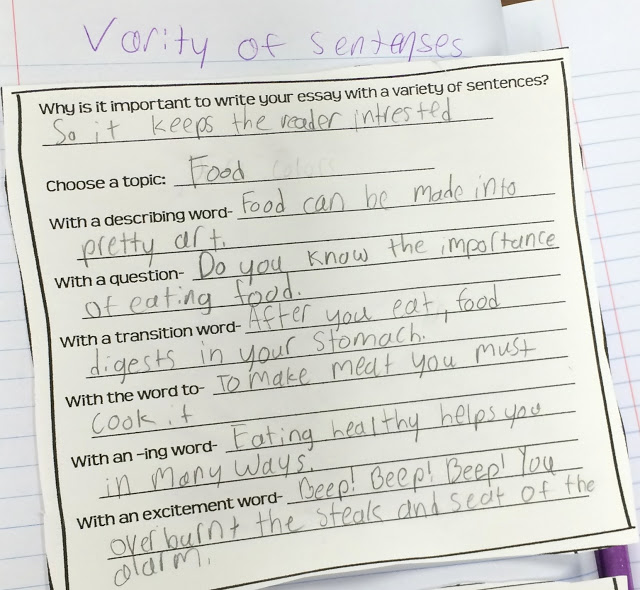 Varity of sentenses
Why is it important to write your essay with a variety of sentences?
So it keeps the reader intrested
Choose a topic: Food
With a describing word- Food can be made into
pretty art.
With a question- Do you know the importance
of eating food.
With a transition word- After you eat, food
digests in your stomach.
With the word to- To make meat you must
cook it
With an -ing word- Eating healthy helps you
in many ways.
With an excitement word- Beep! Beep! Beep! You
over burnt the steak and seat of the
alarm.